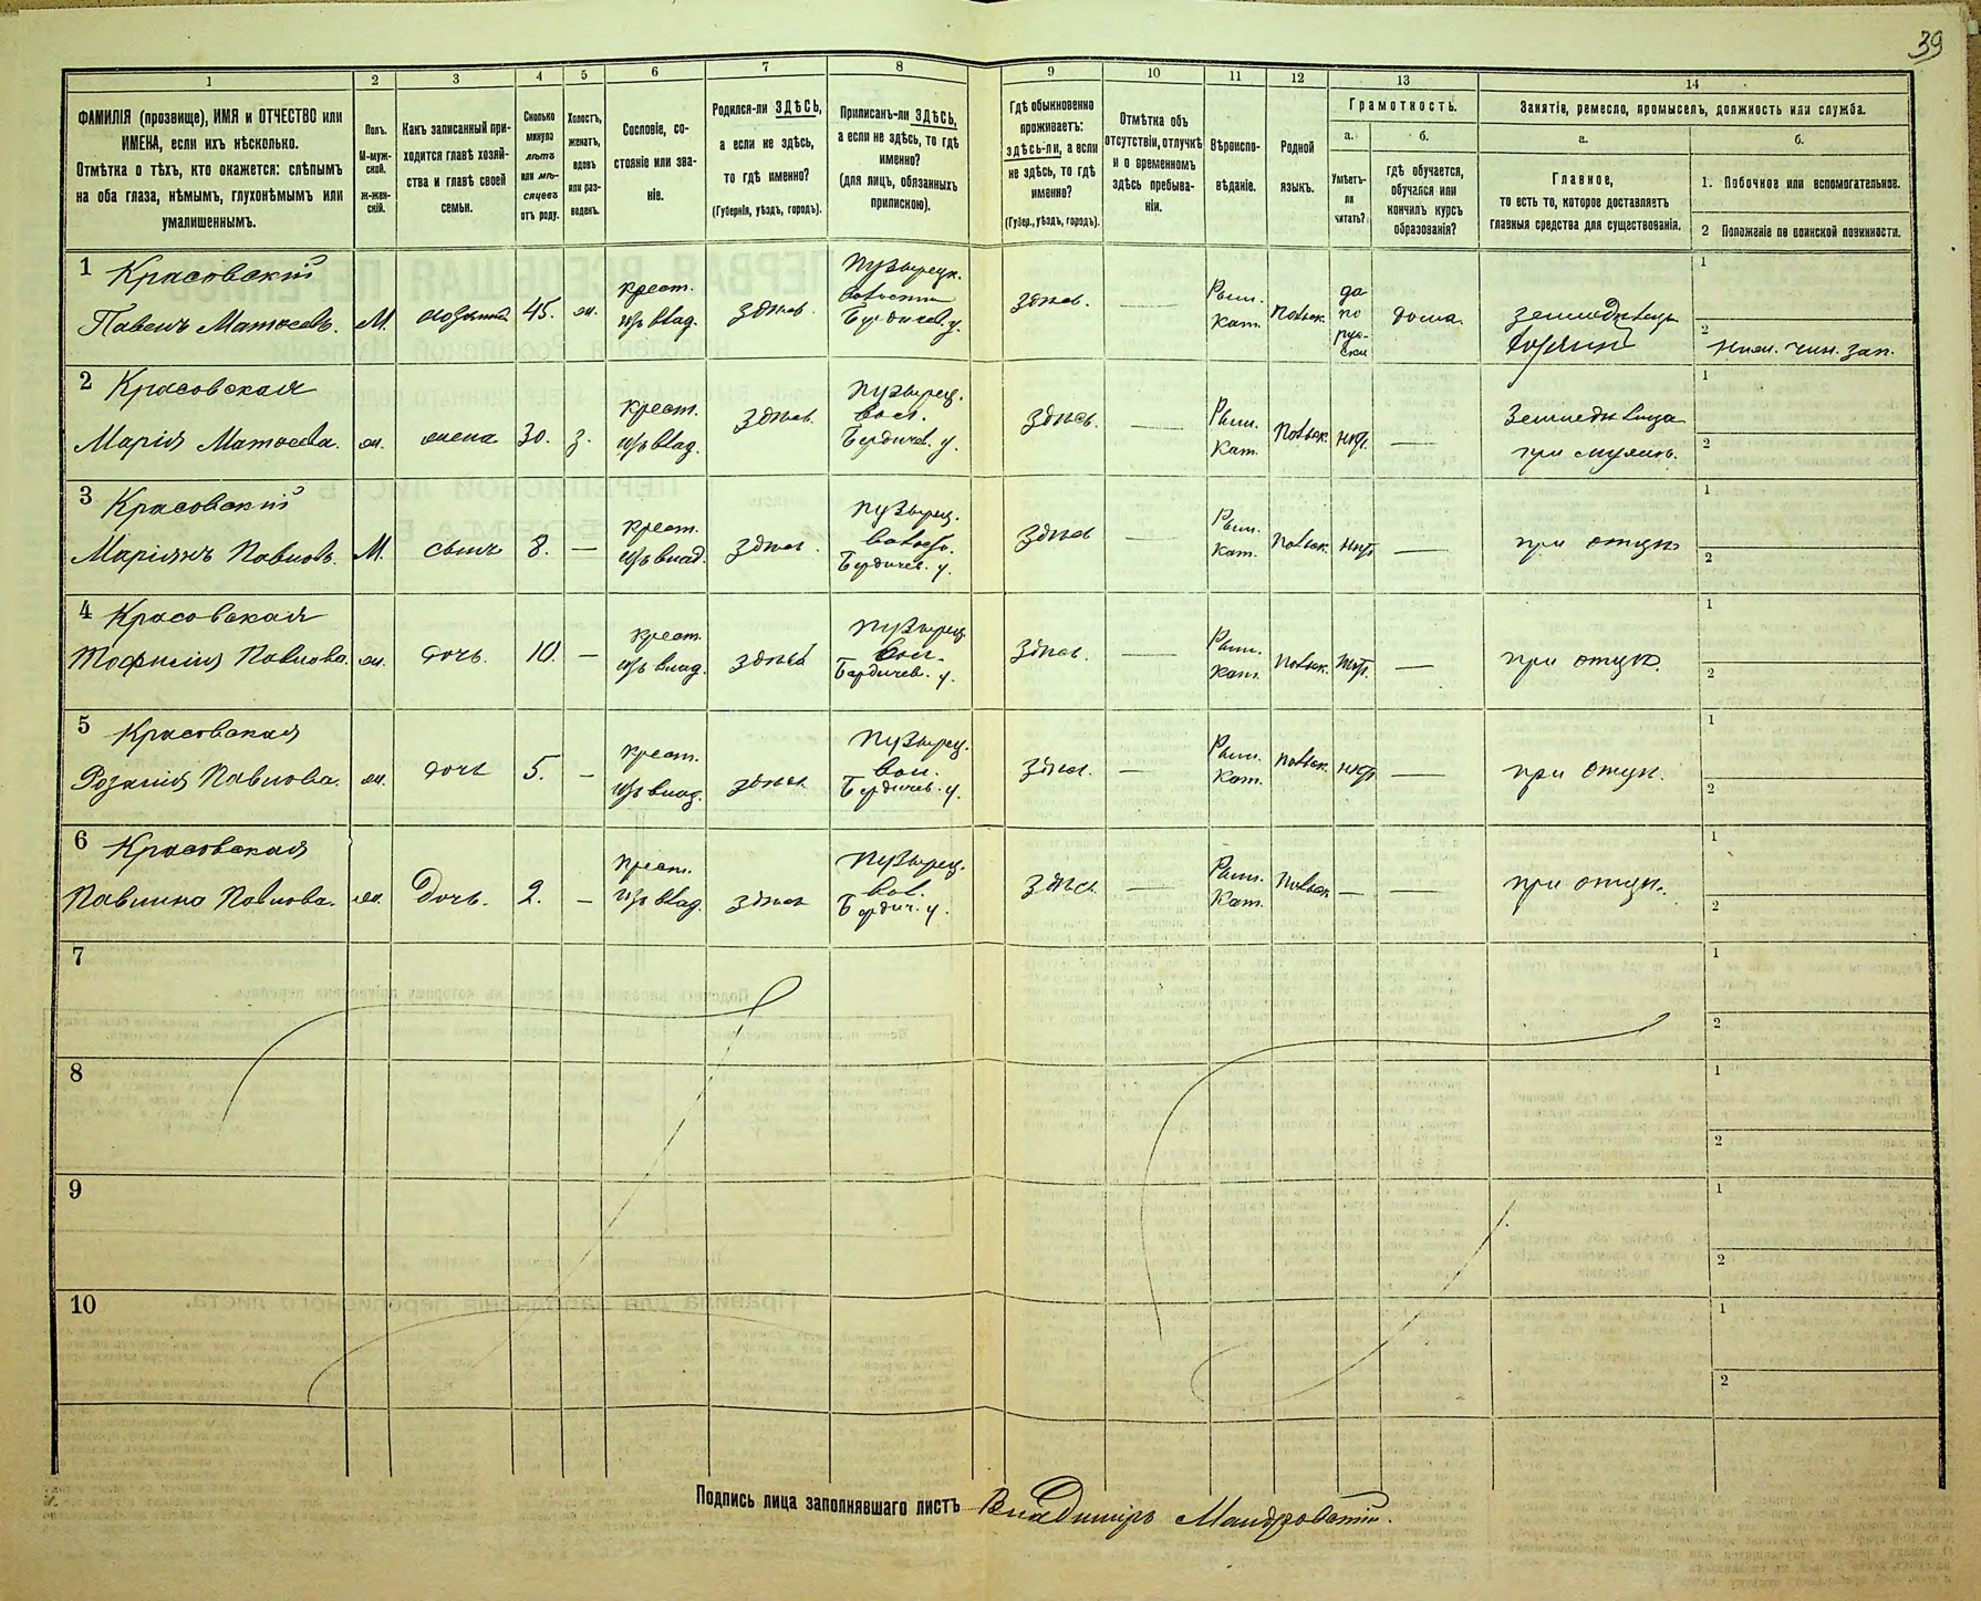 39
1 2 3 4 5 6 7 8 9 10 11 12 13 14
ФАМИЛІЯ (прозвище), ИМЯ и ОТЧЕСТВО или
ИМЕНА, если ихъ нѣсколько.
Отмѣтка о тѣхъ, кто окажется: слѣпымъ
на оба глаза, нѣмымъ, глухонѣмымъ или
умалишеннымъ.
Полъ.
М-муж-
ской.
ж-жен-
скій.
Какъ записанный при-
ходится главѣ хозяй-
ства и главѣ своей
семьи.
Сколько
минуло
лѣтъ
или мѣ-
сяцевъ
отъ роду.
Холостъ,
женатъ,
вдовъ
или раз-
веденъ.
Сословіе, со-
стояніе или зва-
ніе.
Родился-ли ЗДѢСЬ,
а если не здѣсь,
то гдѣ именно?
(Губернія, уѣздъ, городъ).
Приписанъ-ли ЗДѢСЬ,
а если не здѣсь, то гдѣ
именно?
(для лицъ, обязанныхъ
припискою).
Гдѣ обыкновенно
проживаетъ:
здѣсь-ли, а если
не здѣсь, то гдѣ
именно?
(Губер., уѣздъ, городъ).
Отмѣтка объ
отсутствіи, отлучкѣ
и о временномъ
здѣсь пребыва-
ніи.
Вѣроиспо-
вѣданіе.
Родной
языкъ.
Грамотность.
а.
Умѣетъ-
ли
читать?
б.
гдѣ обучается,
обучался или
кончилъ курсъ
образованія?
Занятіе, ремесло, промыселъ, должность или служба.
а.
Главное,
то есть то, которое доставляетъ
главныя средства для существованія.
б.
1. Побочное или вспомогательное.
2 Положеніе по воинской повинности.
1 Красовскій
Павелъ Матвеевъ. М. хозяинъ 45. ж.
крест.
изъ влад.
здѣсь.
Пузырецк.
волости
Бердичев. у.
здѣсь.
Рим.
Кат.
Польск.
да
по
рус-
ски
дома.
земледѣлецъ
хозяинъ
1
2
Ниж. чин. зап.
2 Красовская
Марія Матвеева. ж. жена 30. з.
крест.
изъ влад.
здѣсь.
Пузырец.
вол.
Бердичев. у.
здѣсь.
Рим.
Кат.
Польск. нѣт.
Земледѣлица
при мужѣ.
1
2
3 Красовскій
Маріянъ Павловъ. М. сынъ 8. —
крест.
изъ влад.
здѣсь.
Пузырец.
волости.
Бердичев. у.
здѣсь
Рим.
Кат.
Польск. нѣт
при отцѣ
1
2
4 Красовская
Тофилія Павлова. ж. дочь. 10. —
крест.
изъ влад.
здѣсь
Пузырец.
вол.
Бердичев. у.
здѣсь.
Рим.
Кат.
Польск. нѣт.
при отцѣ.
1
2
5 Красовская
Розалія Павлова. ж. дочь 5. —
крест.
изъ влад.
здѣсь
Пузырец.
вол.
Бердичев. у.
здѣсь.
Рим.
Кат.
Польск. нѣт
при отцѣ.
1
2
6 Красовская
Павлина Павлова. ж. Дочь. 2. —
крест.
изъ влад.
здѣсь
Пузырец.
вол.
Бердич. у.
здѣсь
Рим.
Кат.
Польск. —
при отцѣ.
1
2
7
1
2
8
1
2
9
1
2
10
1
2
Подпись лица заполнявшаго листъ Владиміръ